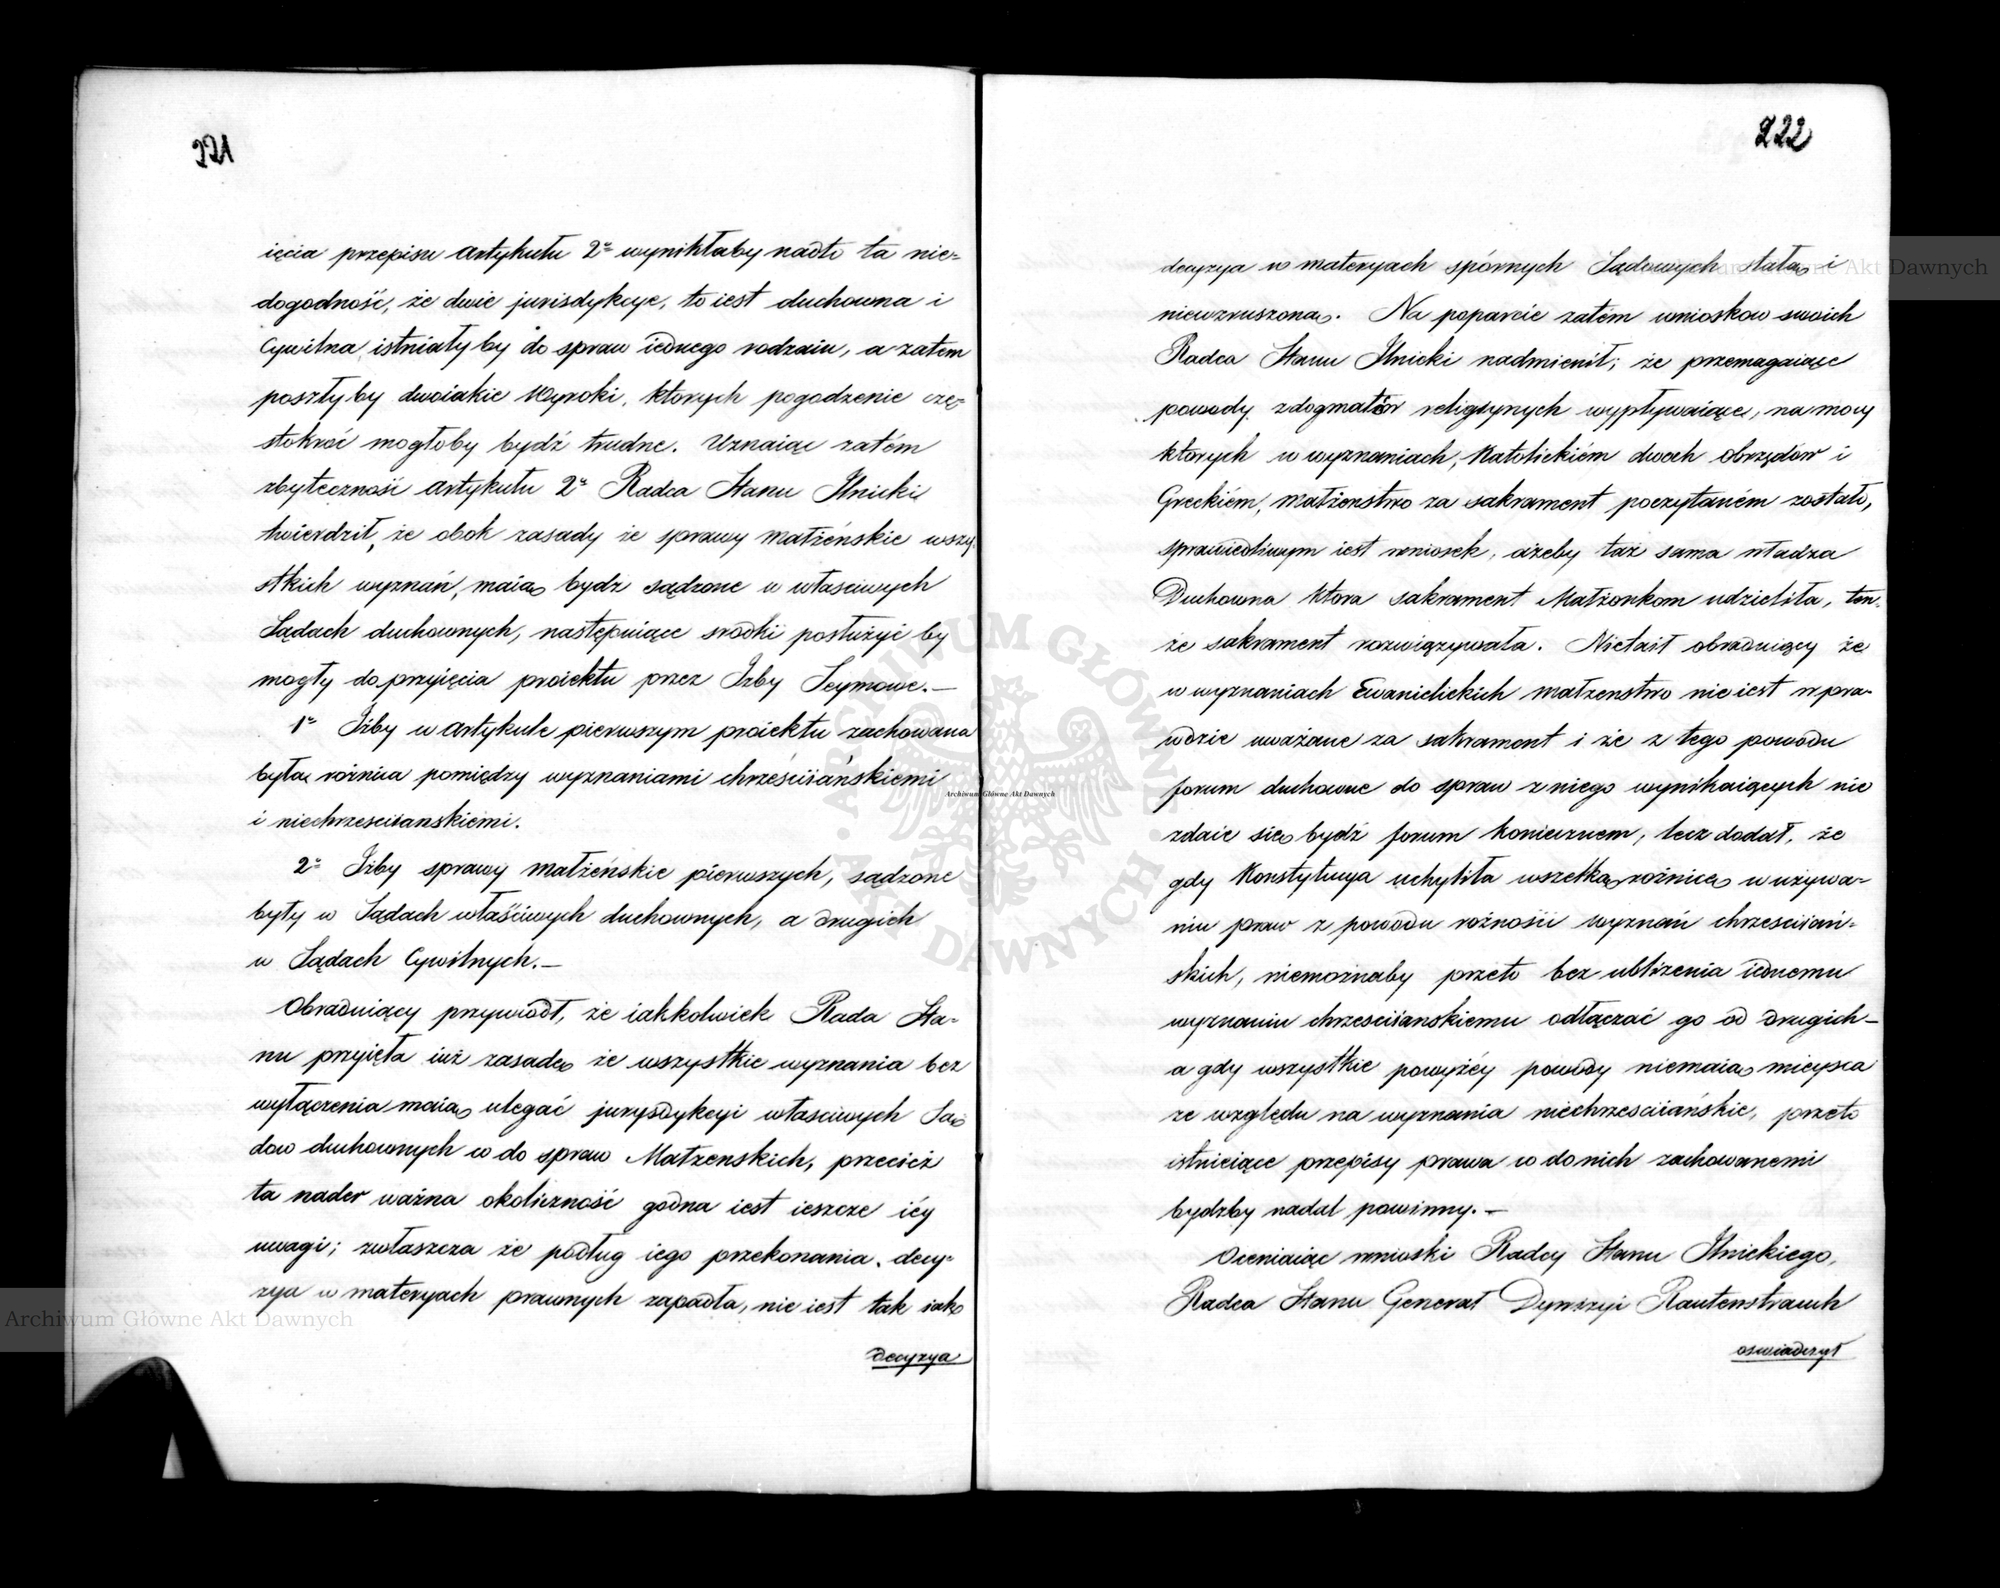 221
ięcia przepisu artykułu 2º wynikłaby nadto ta nie-
dogodność, że dwie jurisdykcye, to iest duchowna i
Cywilna istniałyby do spraw iednego rodzaiu, a zatem
poszłyby dwoiakie Wyroki, ktorych pogodzenie czę-
stokroć mogłoby bydź trudne. Uznaiąc zatém
zbyteczność artykułu 2º Radca Stanu Ilnicki
twierdził, że obok zasady że sprawy małżeńskie wszy-
stkich wyznań, maią bydz sądzone w właściwych
Sądach duchownych, następuiące srodki posłużyć by
mogły do przyięcia proiektu przez Izby Seymowe.—
1º Iżby w artykule pierwszym proiektu zachowana
była różnica pomiędzy wyznaniami chrześciiańskiemi
i niechrzesciianskiemi.
2º Iżby sprawy małżeńskie pierwszych, sądzone
były w Sądach właściwych duchownych, a drugich
w Sądach Cywilnych.—
Obraduiący przywiódł, że iakkolwiek Rada Sta-
nu przyięła iuż zasadę że wszystkie wyznania bez
wyłączenia maią ulegać jurysdykcyi własciwych Są
dow duchownych w do spraw Małzenskich, przecież
ta nader ważna okoliczność godna iest ieszcze iéy
uwagi; zwłaszcza że podług iego przekonania, decy-
zya w materyach prawnych zapadła, nie iest tak iako
decyzya
222
decyzya w materyach spórnych Sądowych stałą i
niewzruszoną. Na poparcie zatém wnioskow swoich
Radca Stanu Ilnicki nadmienił; że przemagaiące
powody z dogmatów religiynych wypływaiące, na mocy
ktorych w wyznaniach, Katolickiém dwoch obrządów i
Greckiém, małżenstwo za sakrament poczytaném zostało,
sprawiedliwym iest wniosek, ażeby taż sama władza
Duchowna ktora sakrament Małżonkom udzieliła, ten-
że sakrament rozwiązywała. Nietaił obraduiący że
w wyznaniach Ewanielickich małzenstwo nie iest wpra-
wdzie uważane za sakrament i że z tego powodu
forum duchowne do spraw z niego wynikaiących nie
zdaie się bydź forum koniecznem, lecz dodał, że
gdy Konstytucya uchyliła wszelką rożnicę w używa-
niu praw z powodu rożności wyznań chrzesciiań-
skich, niemożnaby przeto bez ubliżenia iednemu
wyznaniu chrzesciianskiemu odłączać go od drugich—
a gdy wszystkie powyżéy powody niemaią mieysca
ze względu na wyznania niechrzesciiańskie, przeto
istnieiące przepisy prawa w do nich zachowanemi
bydzby nadal powinny.—
Oceniaiąc wnioski Radcy Stanu Ilnickiego,
Radca Stanu Generał Dywizyi Rautenstrauch
oswiadczył
Archiwum Główne Akt Dawnych